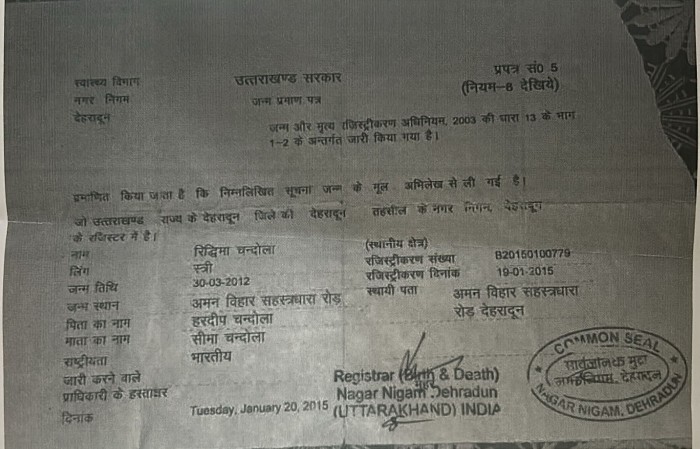 स्वास्थ्य विभाग
उत्तराखण्ड सरकार
प्रपत्र सं0 5
नगर निगम
जन्म प्रमाण पत्र
(नियम-8 देखिये)
देहरादून
जन्म और मृत्य रजिस्ट्रीकरण अधिनियम, 2003 की धारा 13 के भाग
1-2 के अन्तर्गत जारी किया गया है।
प्रमाणित किया जाता है कि निम्नलिखित सूचना जन्म के मूल अभिलेख से ली गई है।
जो उत्तराखण्ड राज्य के देहरादून जिले की देहरादून तहसील के नगर निगम, देहरादून
के रजिस्टर में है।
(स्थानीय क्षेत्र)
नाम रिद्धिमा चन्दोला रजिस्ट्रीकरण संख्या B20150100779
लिंग स्त्री रजिस्ट्रीकरण दिनांक 19-01-2015
जन्म तिथि 30-03-2012 स्थायी पता अमन विहार सहस्त्रधारा
जन्म स्थान अमन विहार सहस्त्रधारा रोड़ रोड़ देहरादून
पिता का नाम हरदीप चन्दोला
माता का नाम सीमा चन्दोला
राष्ट्रीयता भारतीय
जारी करने वाले
प्राधिकारी के हस्ताक्षर
दिनांक Tuesday, January 20, 2015
Registrar (Birth & Death)
मुहर
Nagar Nigam Dehradun
(UTTARAKHAND) INDIA
COMMON SEAL
सार्वजनिक मुद्रा
देहरादून
NAGAR NIGAM, DEHRADUN